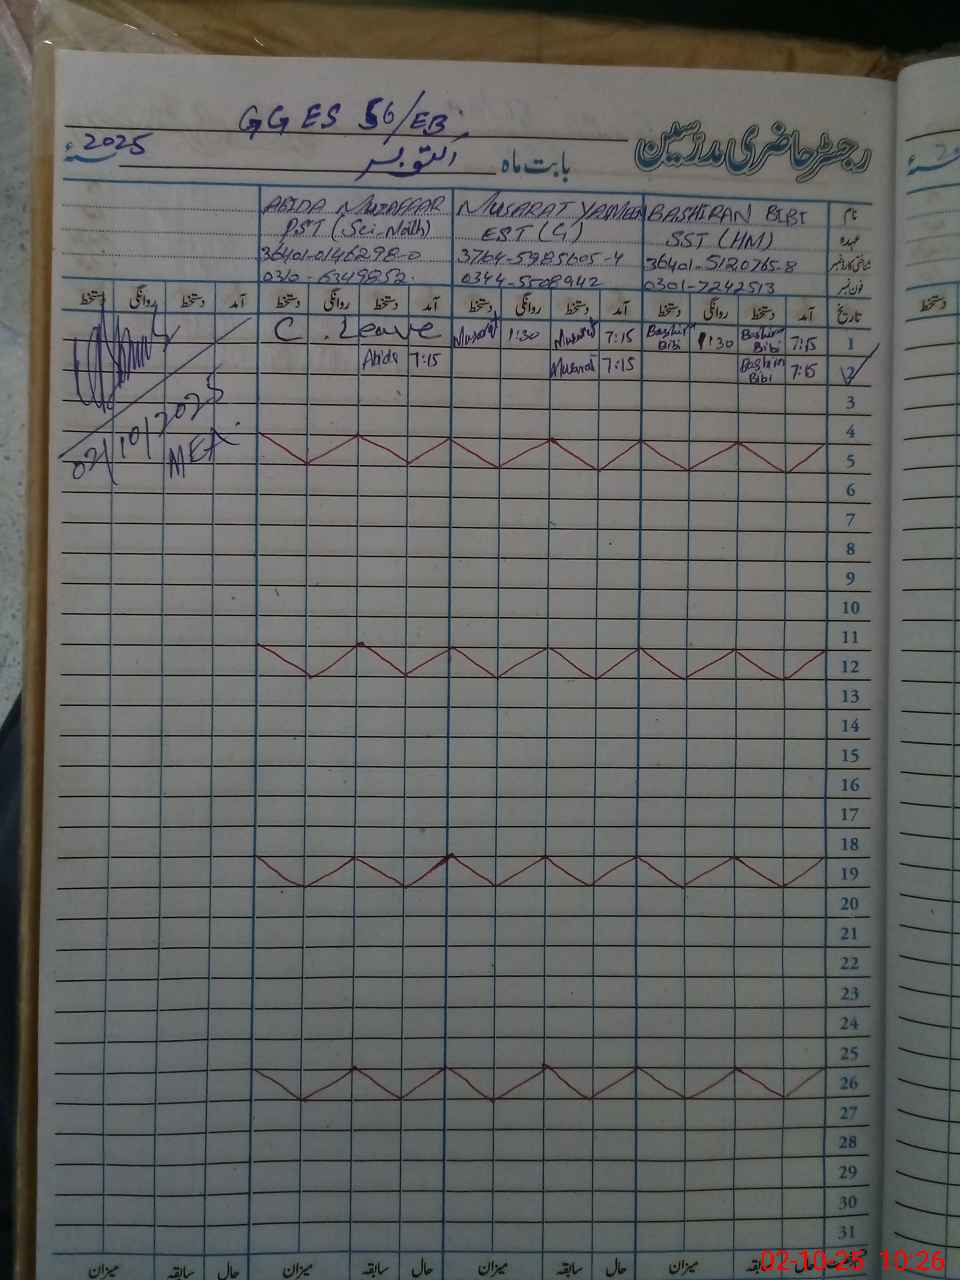 GGES 56/EB
رجسٹر حاضری مدرسین
بابت ماہ اکتوبر
2025ء
نام BASHIRAN BIBI MUSARAT YASMEEN ABIDA MUZAFFAR
عہدہ SST (HM) EST (G) PST (Sci-Math)
شناختی کارڈ نمبر 36401-5120765-8 3764-5985605-4 36401-0146298-0
فون نمبر 0301-7242513 0344-5508942 0310-6349852
تاریخ آمد دستخط روانگی دستخط آمد دستخط روانگی دستخط آمد دستخط روانگی دستخط آمد دستخط روانگی دستخط
1 7:15 Bashiran Bibi 1:30 Bashiran Bibi 7:15 Musarat 1:30 Musarat C. Leave
2 7:15 Bashiran Bibi 7:15 Musarat 7:15 Abida
3
4
5
6
7
8
9
10
11
12
13
14
15
16
17
18
19
20
21
22
23
24
25
26
27
28
29
30
31
02/10/2025
MEA
حال سابقہ میزان حال سابقہ میزان حال سابقہ میزان حال سابقہ میزان
دستخط
02-10-25 10:26